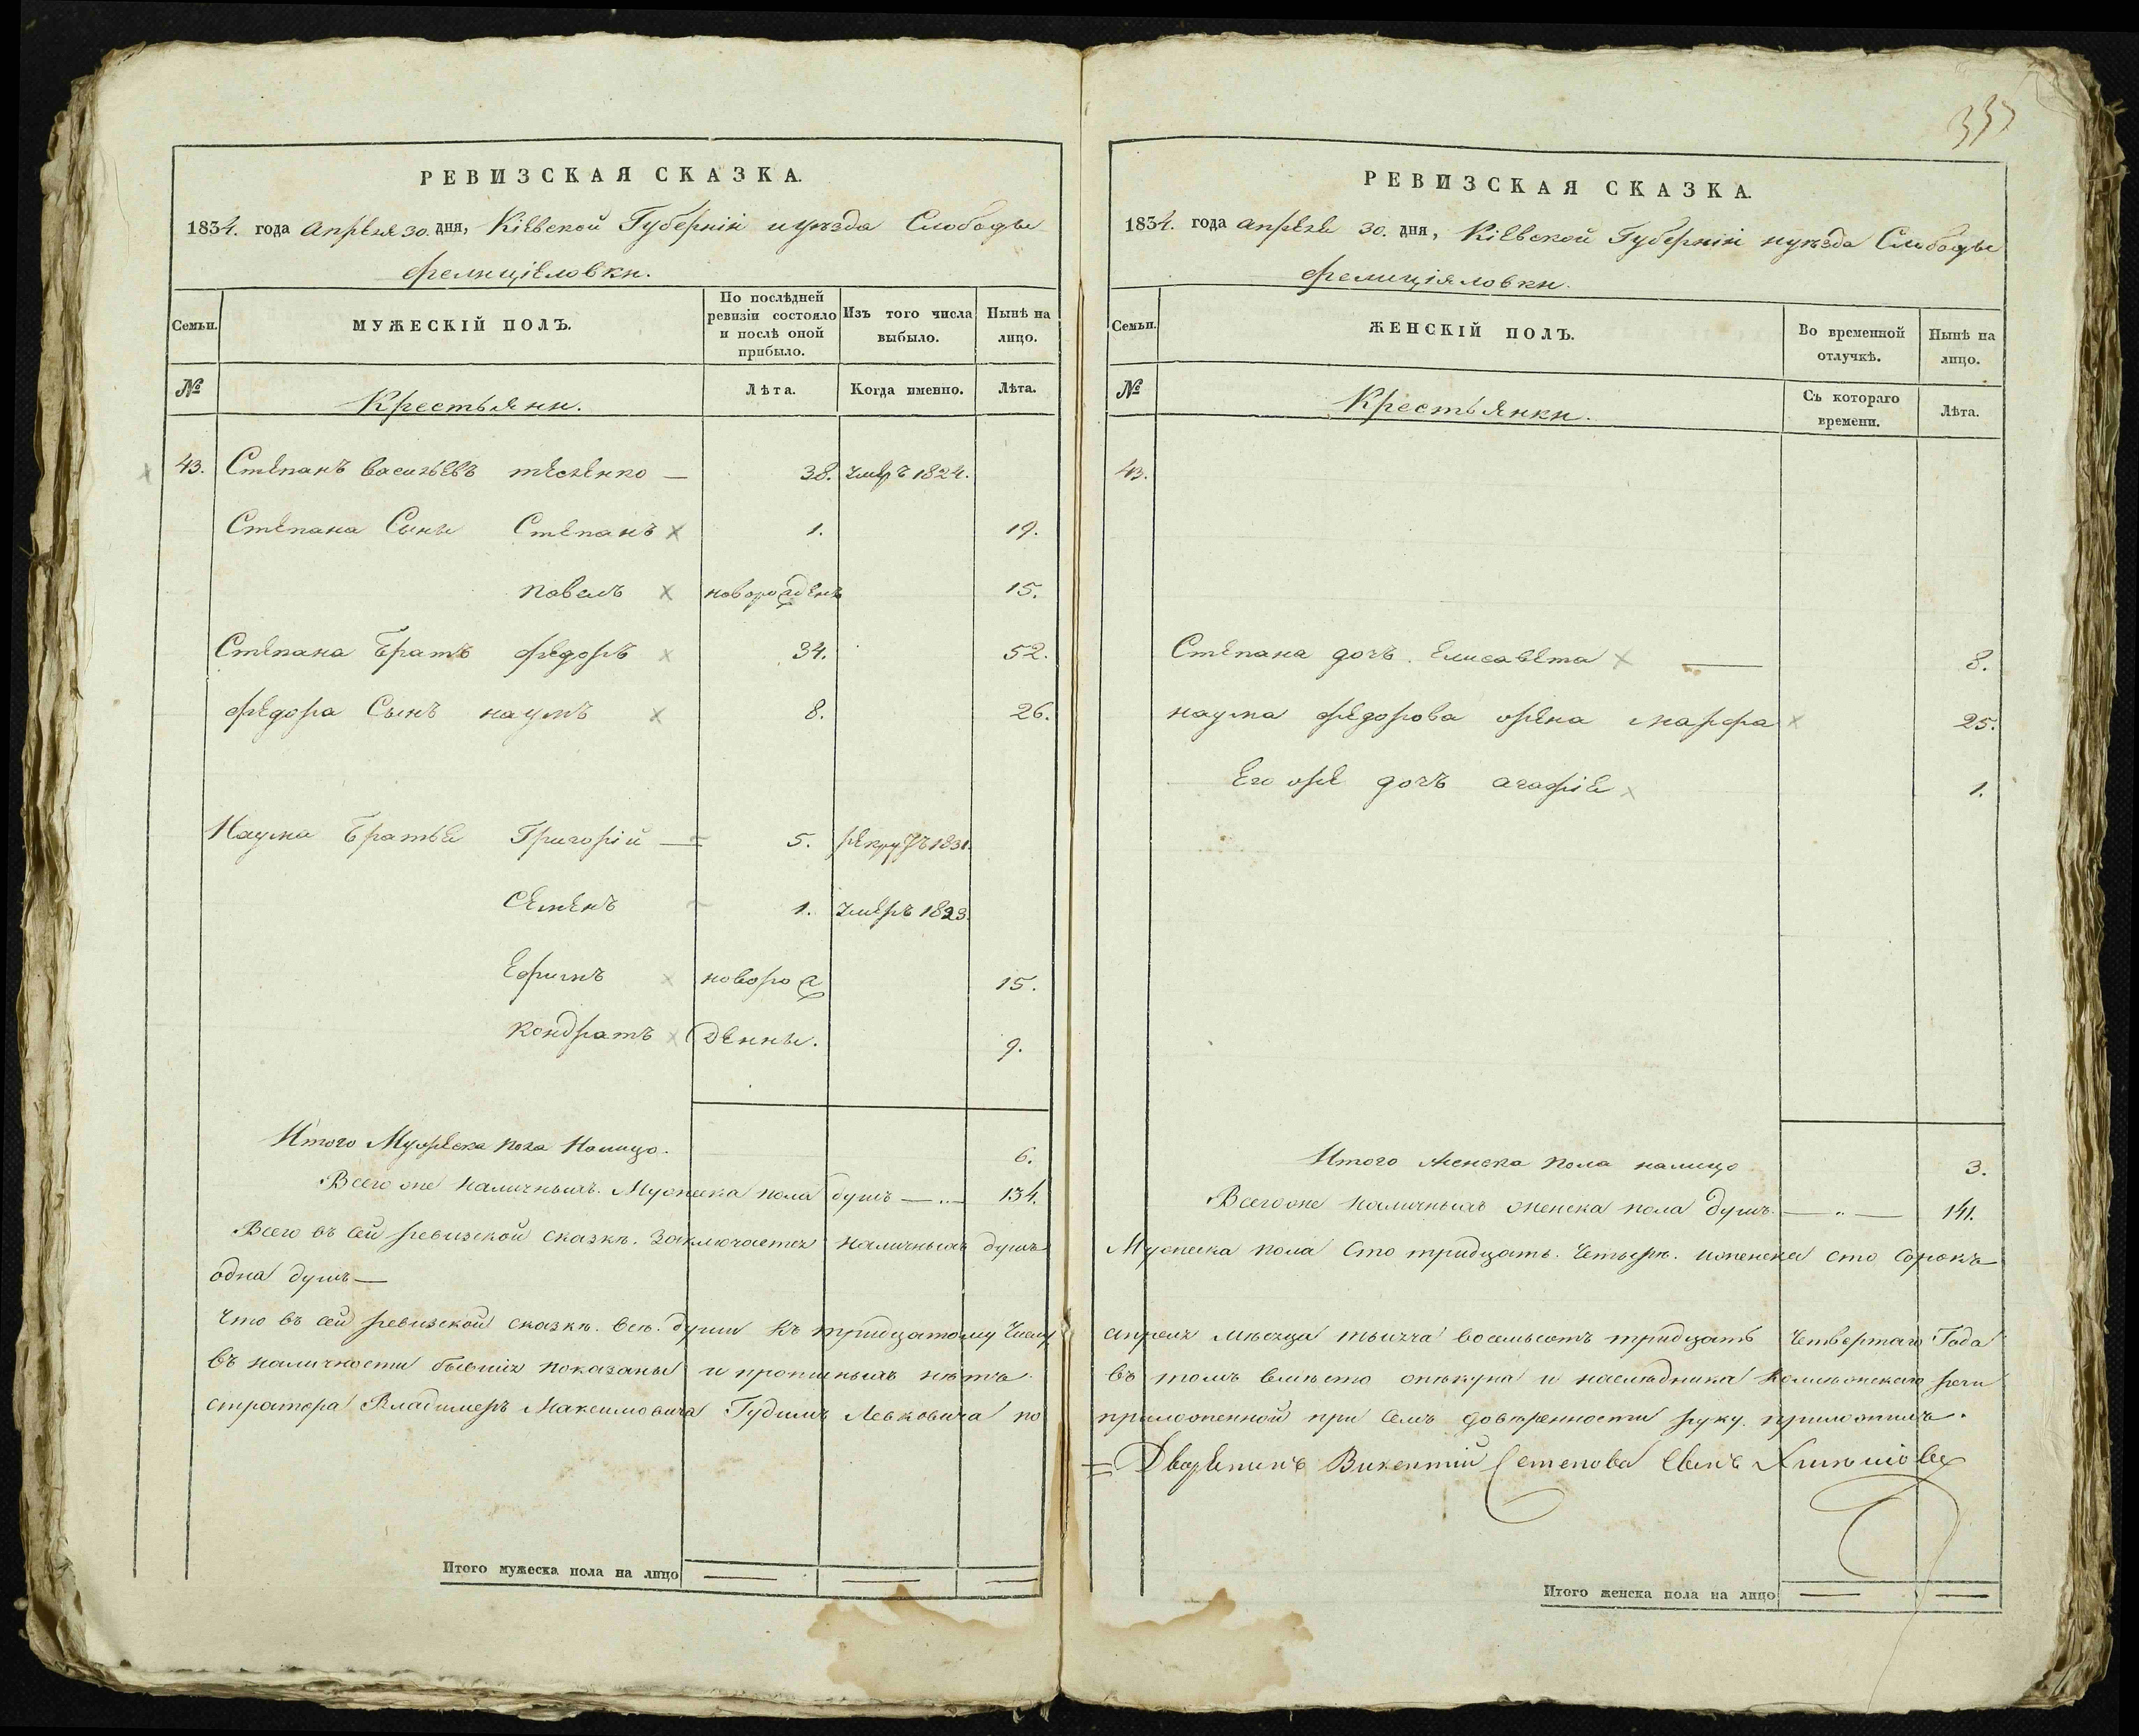 РЕВИЗСКАЯ СКАЗКА.
1834. года Апреля 30. дня, Кіевской Губерніи и уѣзда Слободы
Фелиціяловки.
Семьи.
МУЖЕСКІЙ ПОЛЪ.
По послѣдней ревизіи состояло и послѣ оной прибыло.
Изъ того числа выбыло.
Нынѣ на лицо.
№
Крестьяни.
Лѣта.
Когда именно.
Лѣта.
43. Степанъ Васильевъ — 38. умеръ 1824.
Степана Сыны Степанъ 1. 19.
Павелъ новорожденъ 15.
Степана Братъ Федоръ 34. 52.
Федора Сынъ Наумъ 8. 26.
Наума Братья Григорій — 5. рекрутъ 1831.
Семенъ 1. умеръ 1823.
Ефимъ новорож 15.
Кондратъ денны. 9.
Итого Мужеска пола Налицо. 6.
Всего же наличныхъ Мужеска пола душъ — 134.
Всего въ сей ревизской сказкѣ. Заключается наличныхъ душъ
одна душъ —
Что въ сей ревизской сказкѣ. всѣ. души къ тридцатому Числу
въ наличности бывшія показаны и прописныхъ нѣтъ
стратора Владимеръ Максимовича Гудимъ Левковича по
Итого мужеска пола на лицо
337
РЕВИЗСКАЯ СКАЗКА.
1834. года Апреля 30. дня, Кіевской Губерніи и уѣзда Слободы
Фелиціяловки.
Семьи.
ЖЕНСКІЙ ПОЛЪ.
Во временной отлучкѣ.
Нынѣ на лицо.
№
Крестьянки.
Съ котораго времени.
Лѣта.
43.
Степана дочь. Елисавета — 8.
Наума Федорова жена Марфа 25.
Его же дочь Агафія 1.
Итого женска пола налицо 3.
Всего же наличныхъ женска пола душъ. — 141.
Мужеска пола Сто тридцать. Четыре. и женска сто сорокъ
апреля Месяца тысяча восемьсотъ тридцать Четвертаго Года
въ томъ вмѣсто опѣкуна и наслѣдника реги
приложенной при семъ довѣренности руку. приложилъ.
Дворенинъ Викентій Семенова Сынъ
Итого женска пола на лицо